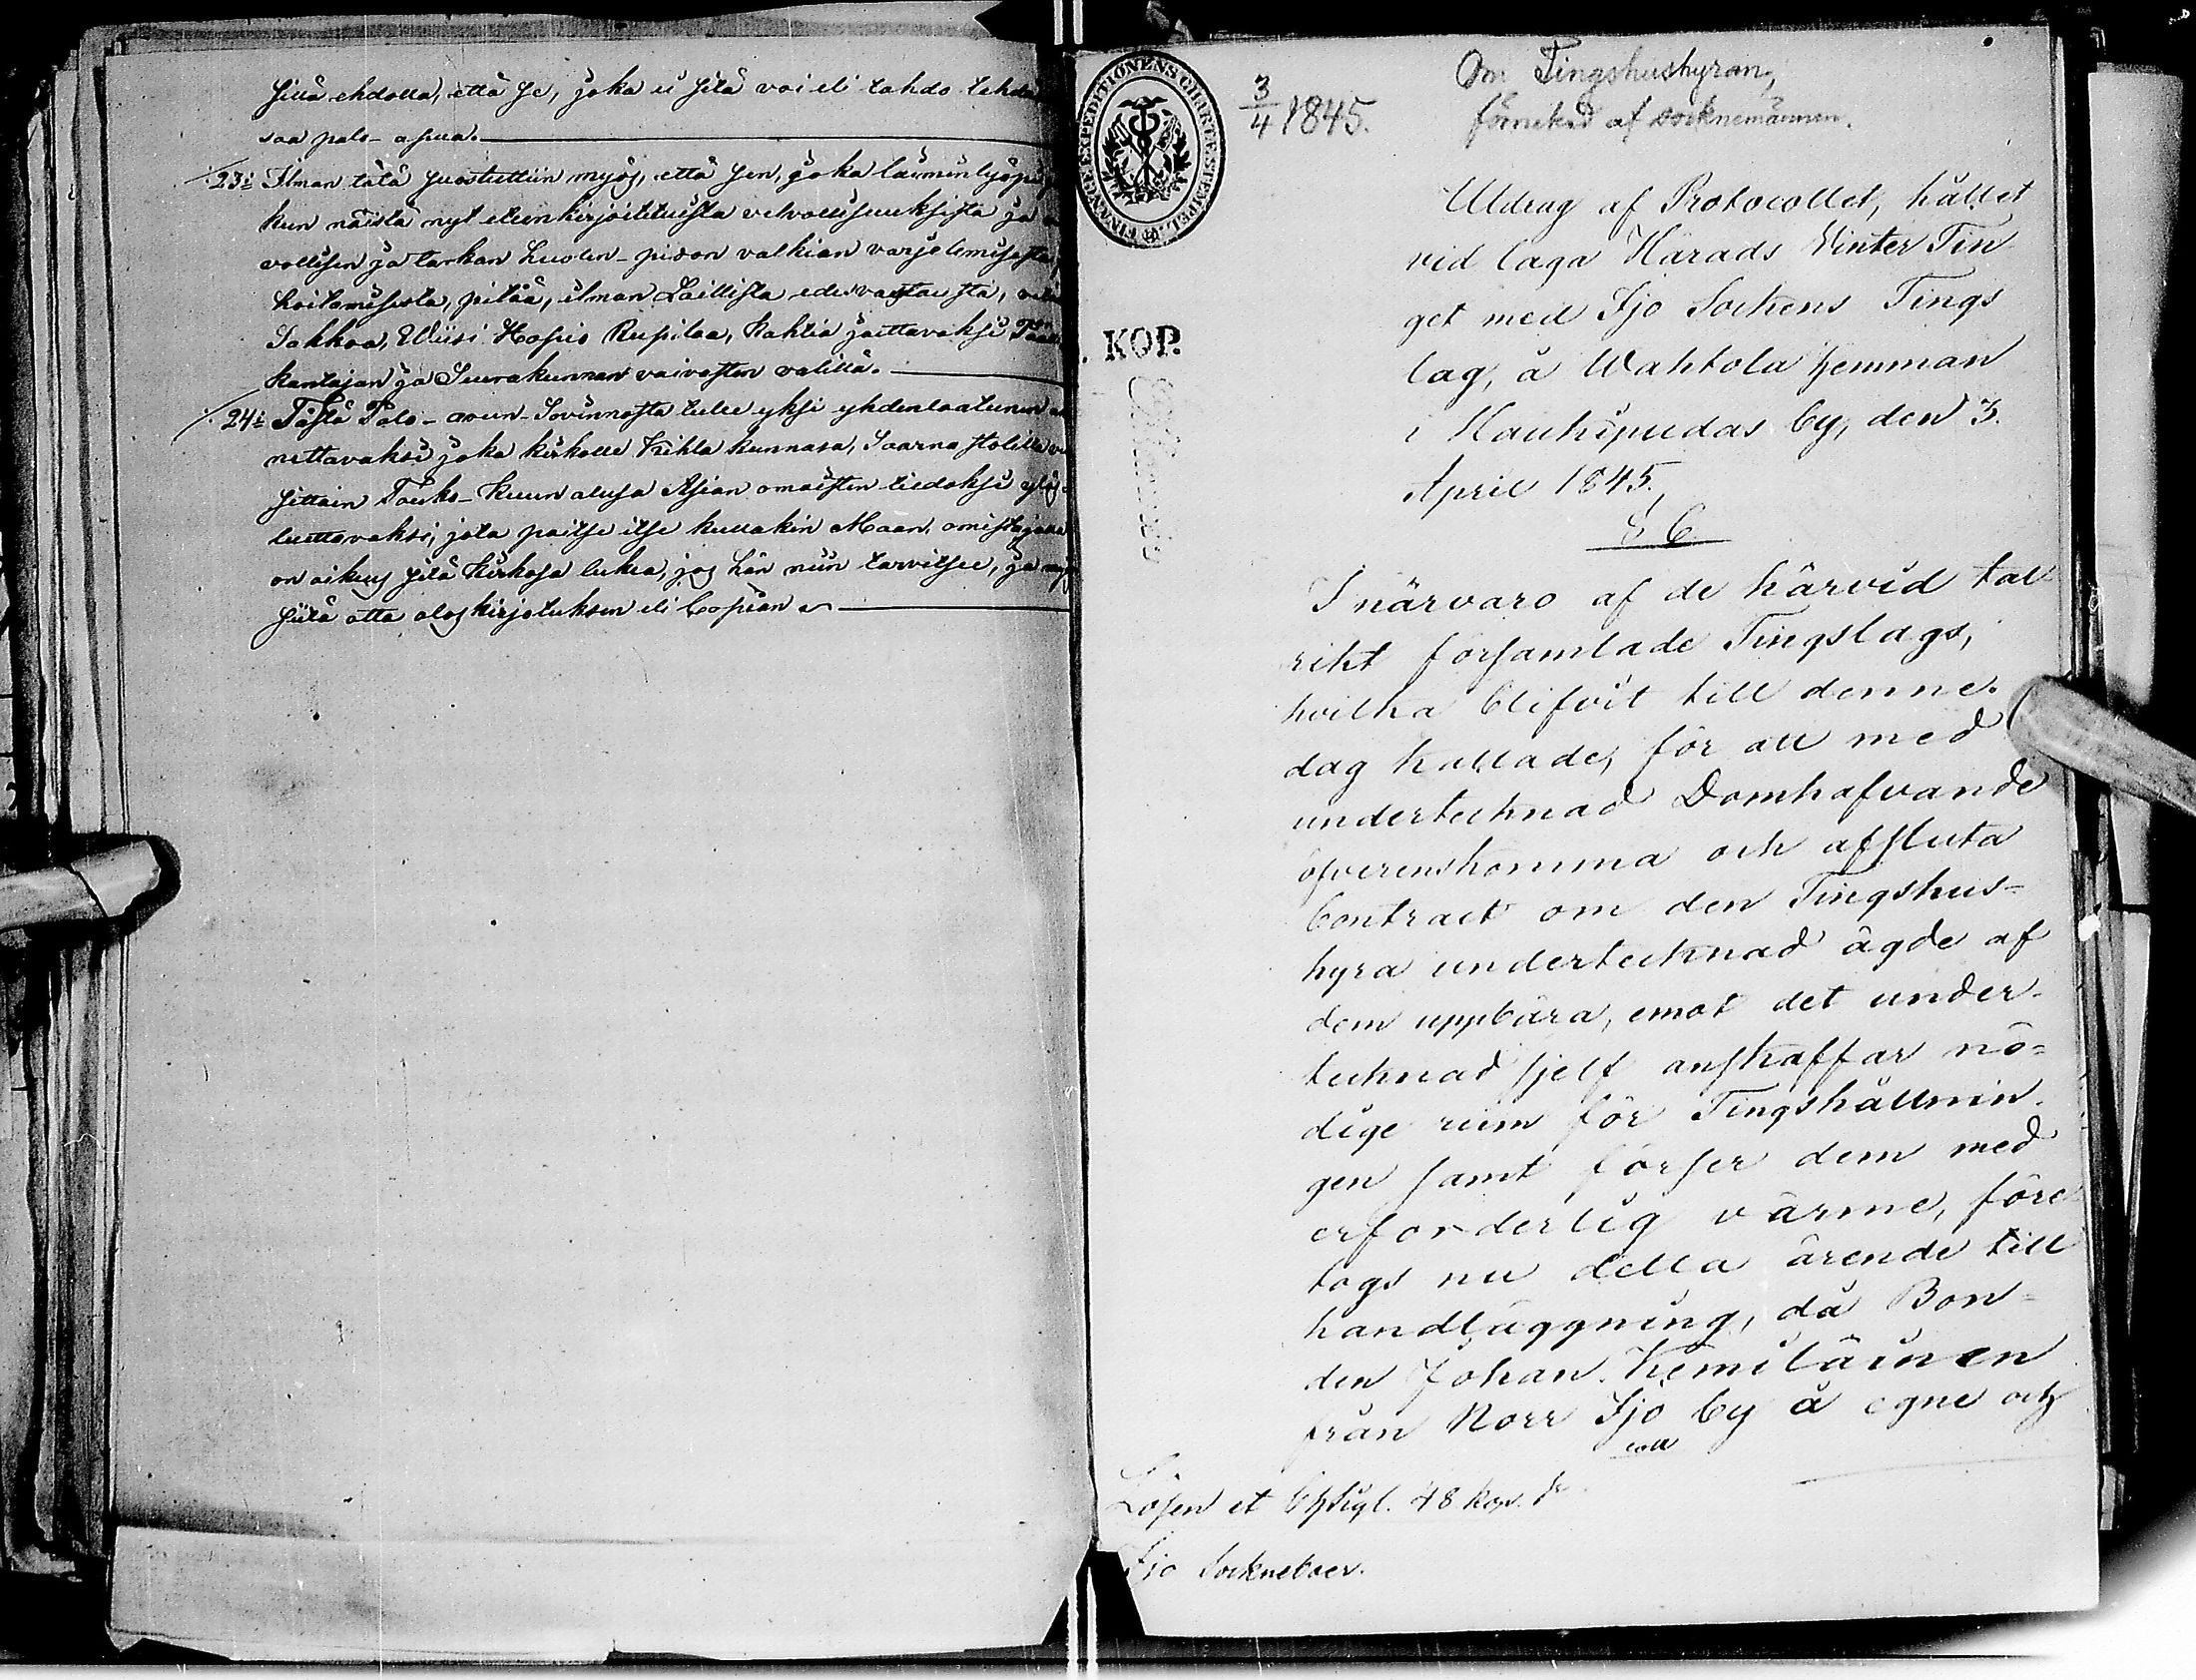 sillä ehdolla, että se, joka ei sitä voi eli tahdo tehdä
saa palo-apua.
23:; Ilman tätä suostuttiin myös, että sen, joka laiminlyöpi
kun näistä nyt eteenkirjoitetuista velvollisuuksista ja
vollisen ja tarkan huolen-pidon valkian varjelemisesta
hoitamisesta, pitää, ilman Laillista edesvastausta,
Sakkoa, Wiisi Hopio Ruplaa, kahtia jaettavaksi Pääll
kantajan ja Seurakunnan vaivasten välillä.
24:; Tästä Palo-avun-Sovinnosta tulee yksi yhdenlaatuinen
nettavaksi joka kirkolle Kihlakunnasa, Saarnastolilta
sittain Touko-Kuun alusa Asian omaisten tiedoksi ylös
luettavaksi, jota paitse itse kullakin Maan omistajalla
on oikeus sitä kirkosa lukea, jos hän niin tarvitsee, ja myös
siitä otta uloskirjotuksen eli Copian
FINANCE EXPEDITIONENS CHARTÆ STEMPEL
3/4 1845.
Om Tingshushyran,
af Socknemännen.
KOP.
Utdrag af Protocollet, hållet
vid laga Härads Winter Tin
get med Ijo Sockens Tings
lag, å Wahtola hemman
i Haukipudas by, den 3.
April 1845.
§ 6.
I närvaro af de härvid tal
rikt församlade Tingslags,
hvilka blifvit till denne
dag kallade, för att med
undertecknad Domhafvande
öfverenskomma och afsluta
Contract om den Tingshus-
hyra undertecknad ägde af
dem uppbära, emot det under-
tecknad sjelf anskaffar nö-
dige rum för Tingshållnin
gen samt förser dem med
erforderlig värme, före
togs nu detta ärende till
handläggning, då Bon-
den Johan Kemiläinen
från Norr Ijo by å egne och
Lösen et Chsigl. 48 kop. Sr
Ijo Sockneboer.